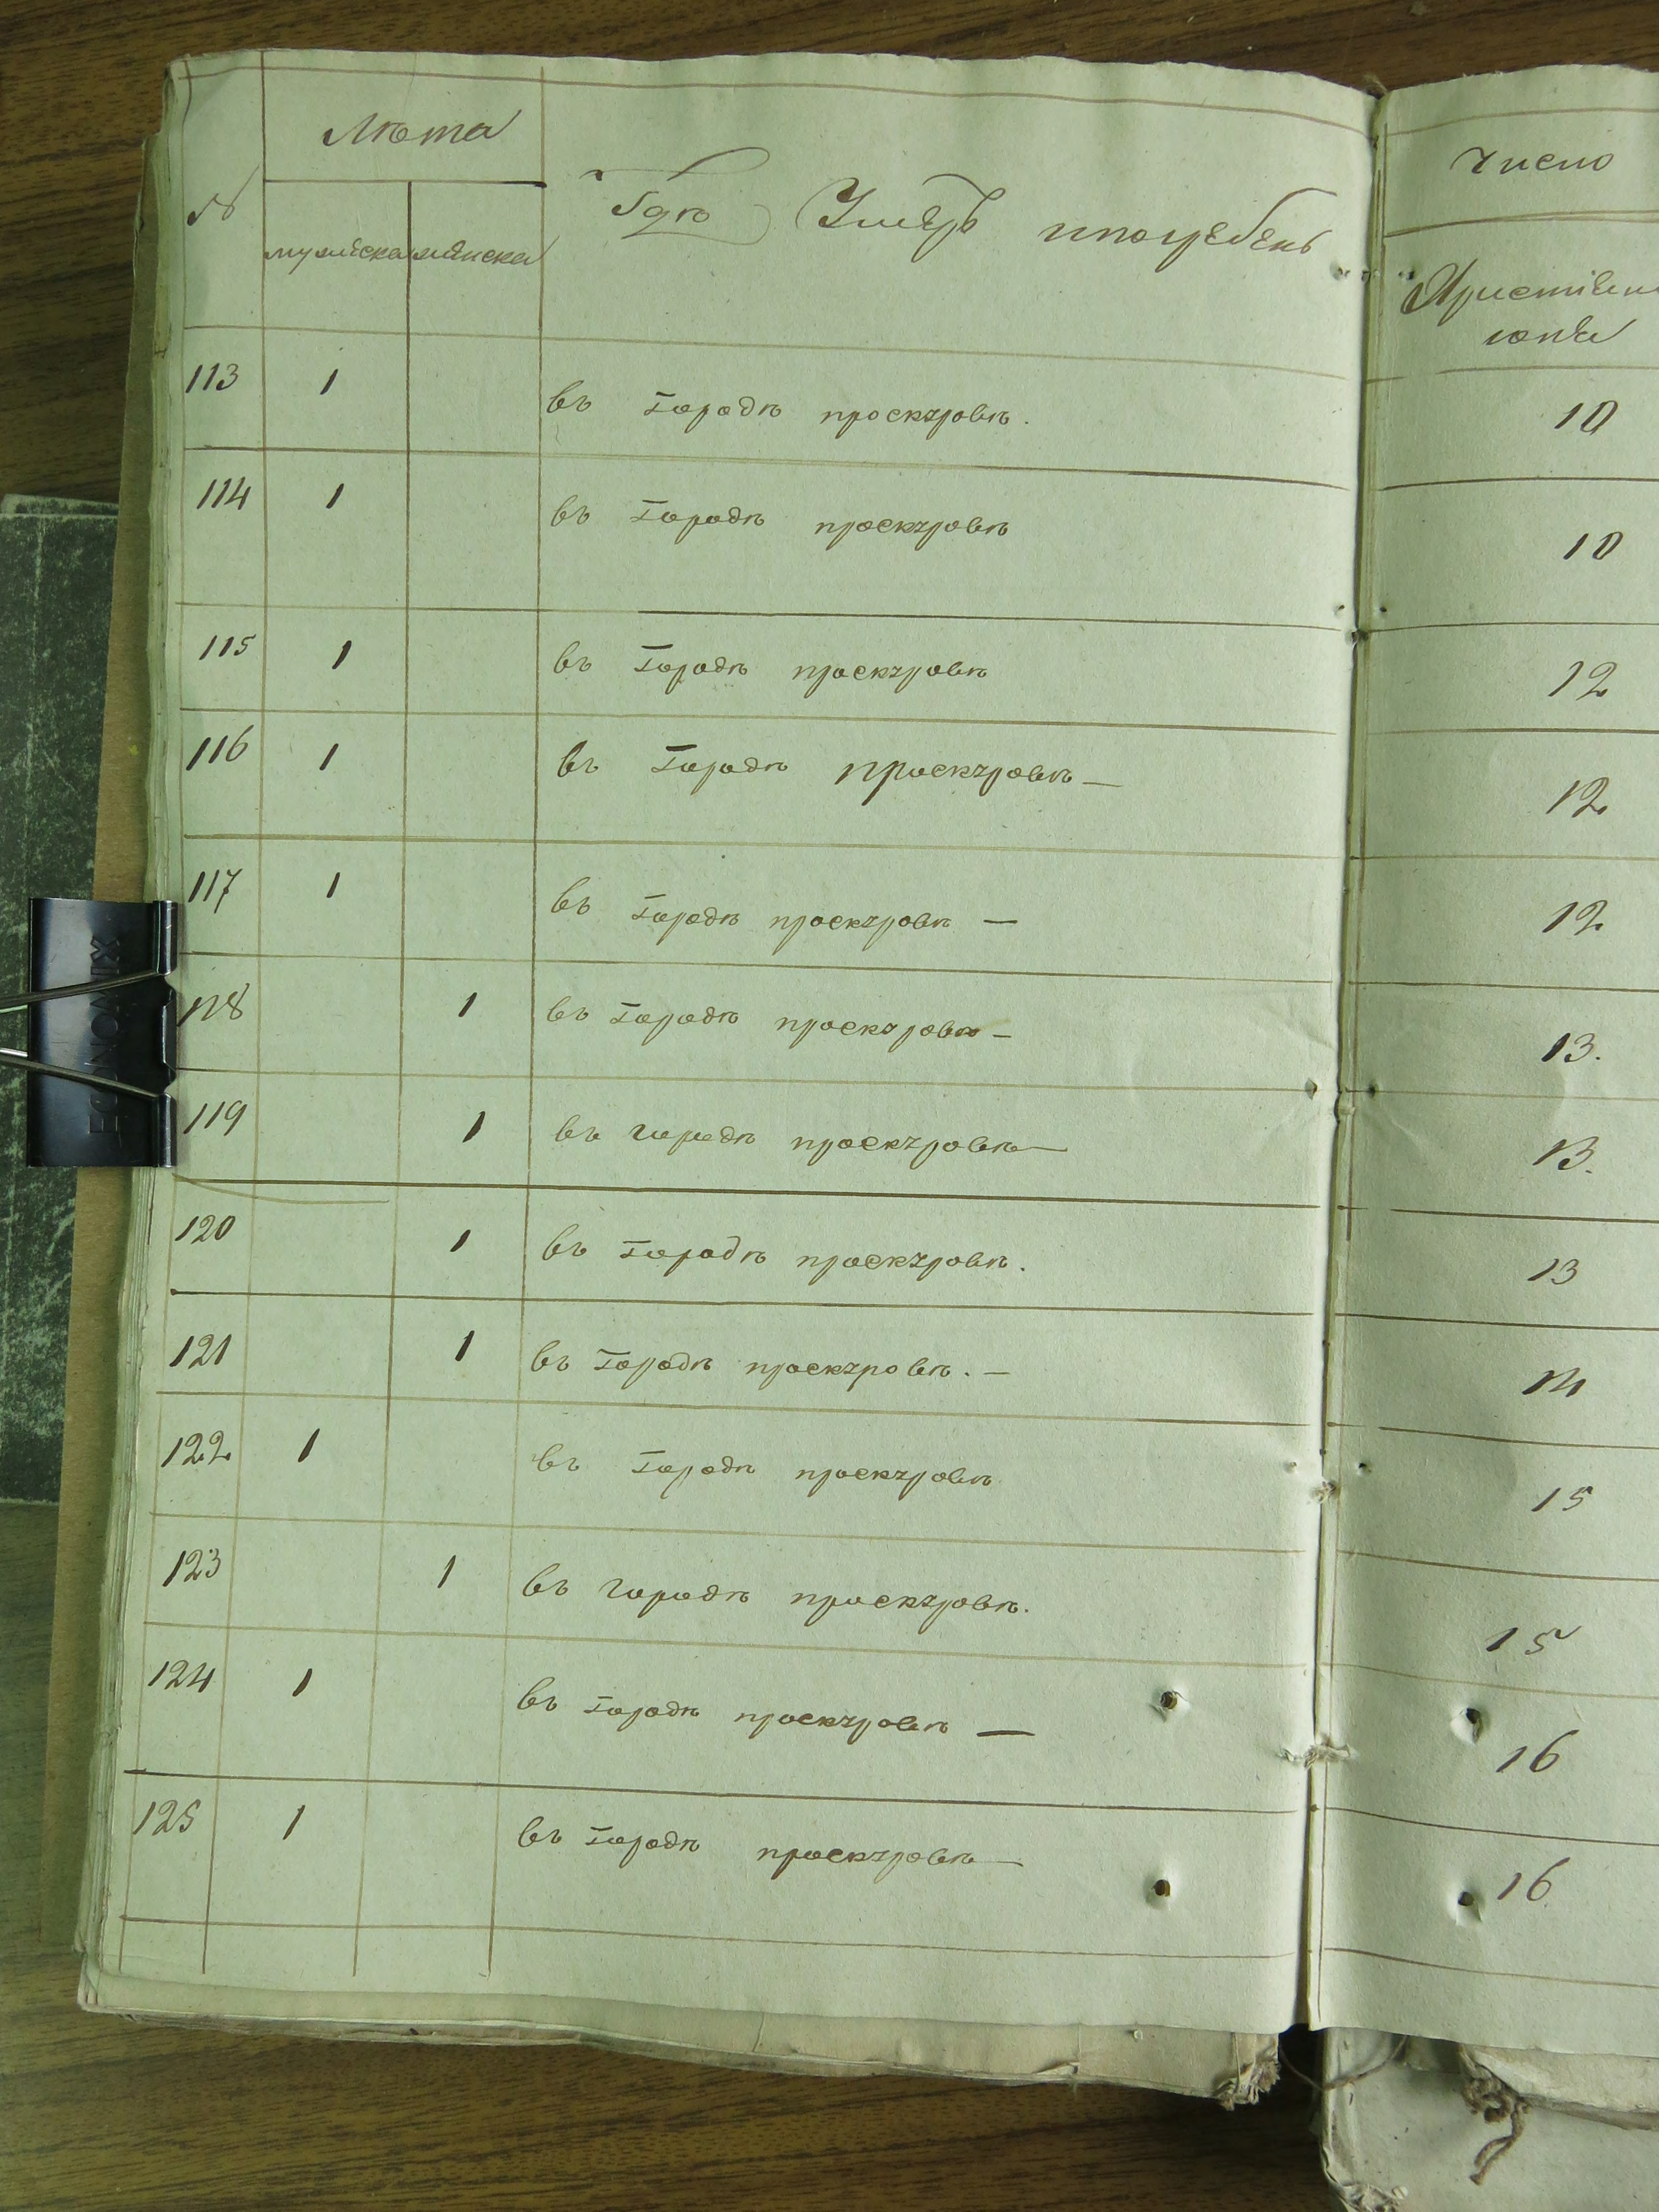 Лѣта
Число
№ Гдѣ Умеръ ипогребенъ
мужеска женска
Христіян
скиа
113 1 въ городѣ проскуровѣ. 10
114 1 въ городѣ проскуровѣ 10
115 1 въ городѣ проскуровѣ 12
116 1 въ городѣ проскуровѣ — 12
117 1 въ городѣ проскуровѣ — 12
118 1 въ городѣ проскуровѣ — 13.
119 1 въ городѣ проскуровѣ — 13.
120 1 въ городѣ проскуровѣ. 13
121 1 въ городѣ проскуровѣ. — 14
122 1 въ городѣ проскуровѣ 15
123 1 въ городѣ проскуровѣ. 15
124 1 въ городѣ проскуровѣ — 16
125 1 въ городѣ проскуровѣ — 16
ECONOMIX